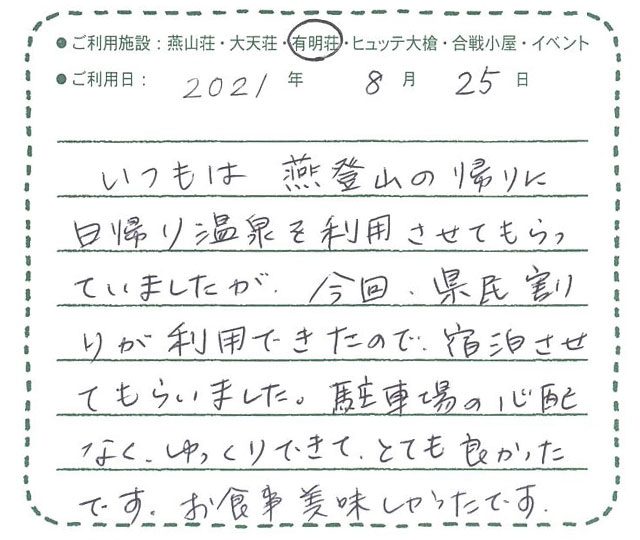 ●ご利用施設：燕山荘・大天荘・有明荘・ヒュッテ大槍・合戦小屋・イベント
●ご利用日： 2021 年 8 月 25 日
いつもは 燕登山の帰りに
日帰り温泉を利用させてもらっ
ていましたが、今回、県民割り
りが利用できたので、宿泊させ
てもらいました。駐車場の心配
なく、ゆっくりできて、とても良かった
です。お食事美味しかったです。